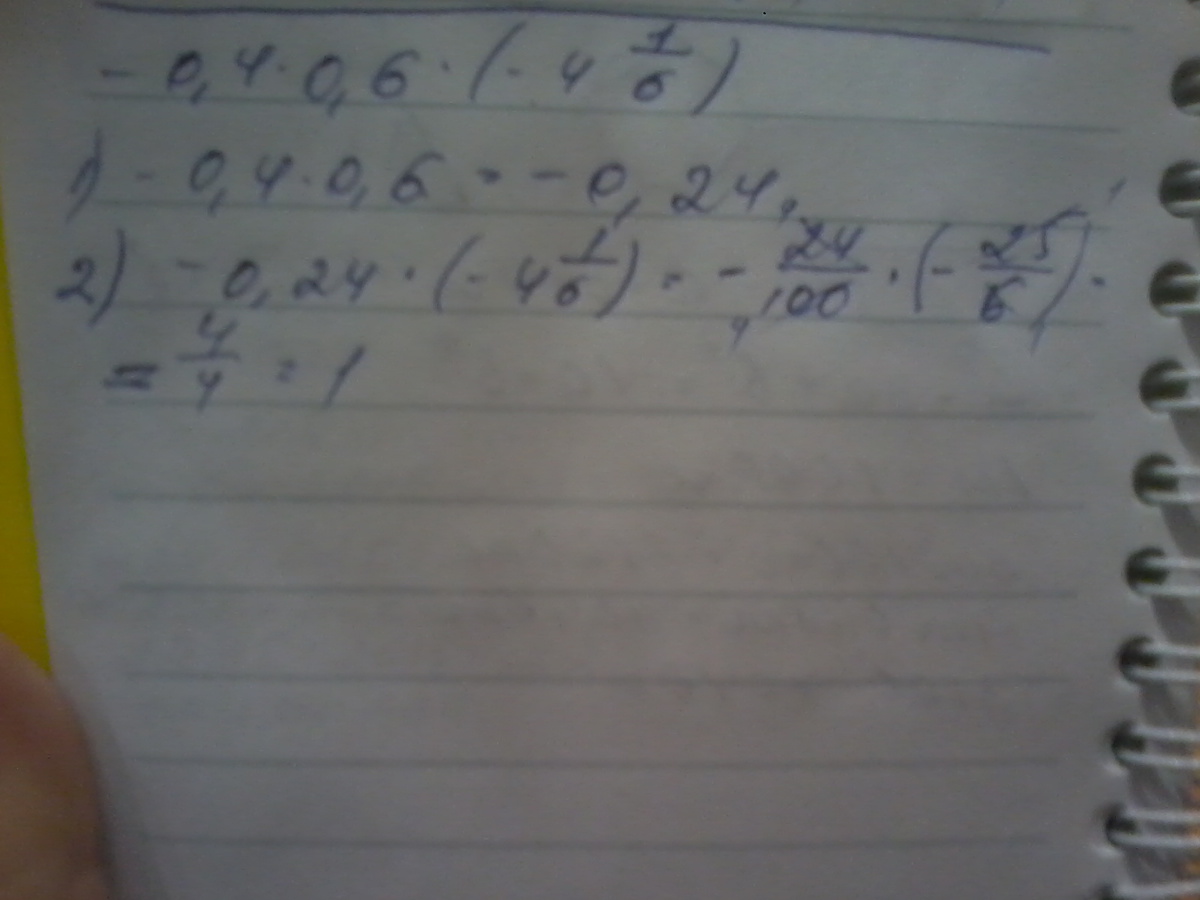 - 0,4 · 0,6 · (- 4 1/6)
1) - 0,4 · 0,6 = - 0,24
2) - 0,24 · (- 4 1/6) = - 24/100 · (- 25/6) =
= 4/4 = 1